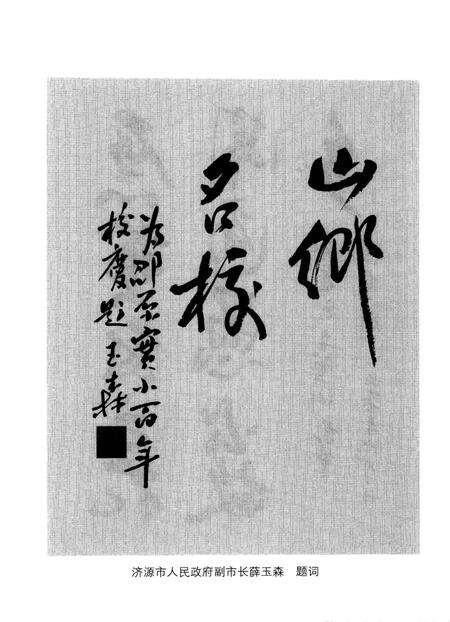 山鄉
名校
为邵原實小百年
校慶题 玉森
济源市人民政府副市长薛玉森 题词